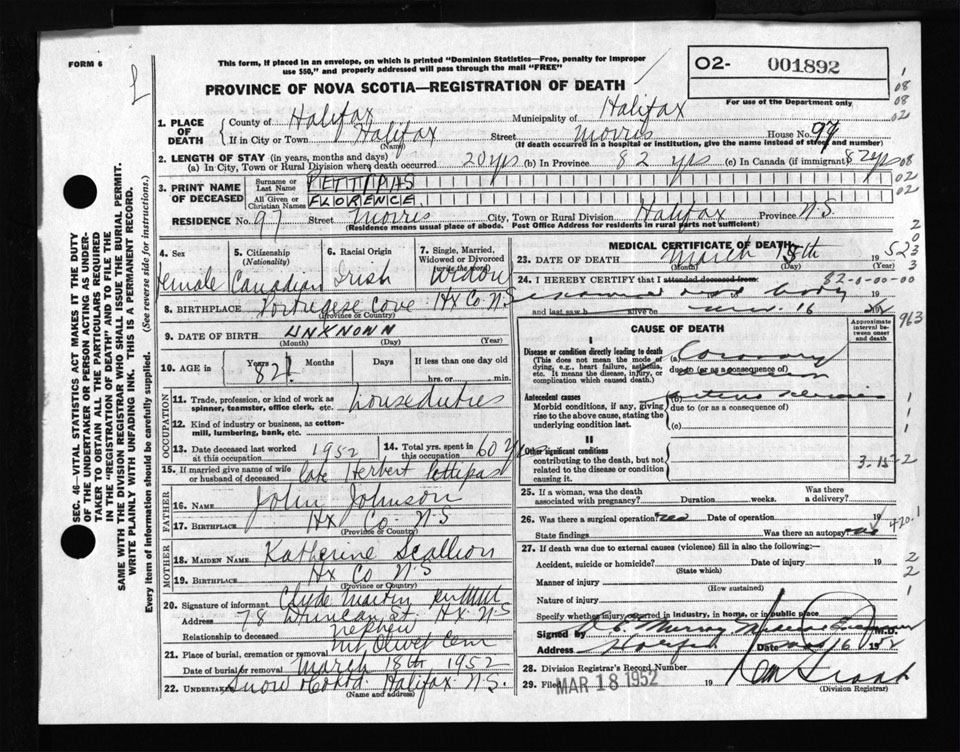 FORM 6
This form, if placed in an envelope, on which is printed "Dominion Statistics—Free, penalty for improper
use $50," and properly addressed will pass through the mail "FREE"
O2- 001892
For use of the Department only
PROVINCE OF NOVA SCOTIA—REGISTRATION OF DEATH
1. PLACE OF DEATH { County of Halifax Municipality of Halifax
If in City or Town Halifax (Name) Street Morris House No. 97
(If death occurred in a hospital or institution, give the name instead of street and number)
2. LENGTH OF STAY (in years, months and days)
(a) In City, Town or Rural Division where death occurred 20 yrs (b) In Province 82 yrs (c) In Canada (if immigrant) 82 yrs
3. PRINT NAME OF DECEASED { Surname or Last Name PETTIPAS
All Given or Christian Names FLORENCE
RESIDENCE No. 97 Street Morris City, Town or Rural Division Halifax Province N.S.
(Residence means usual place of abode. Post Office Address for residents in rural parts not sufficient)
4. Sex Female
5. Citizenship (Nationality) Canadian
6. Racial Origin Irish
7. Single, Married, Widowed or Divorced (write the word) Widow
8. BIRTHPLACE Portugese Cove Hx Co N S
(Province or Country)
9. DATE OF BIRTH UNKNOWN
(Month) (Day) (Year)
10. AGE in { Years 82 Months Days If less than one day
hrs. or min.
OCCUPATION
11. Trade, profession, or kind of work as spinner, teamster, office clerk, etc. house duties
12. Kind of industry or business, as cotton-mill, lumbering, bank, etc.
13. Date deceased last worked at this occupation 1952
14. Total yrs. spent in 60 yrs
15. If married give name of wife or husband of deceased late Herbert Pettipas
FATHER
16. NAME John Johnson
17. BIRTHPLACE Hx Co. N.S
(Province or Country)
MOTHER
18. MAIDEN NAME Katherine Scallion
19. BIRTHPLACE Hx Co N.S
(Province or Country)
20. Signature of informant Clyde Martin
Address 78 Duncan St Hx N.S
Relationship to deceased nephew
21. Place of burial, cremation or removal Mt Olivet Cem
Date of burial or removal March 18th 1952
22. Undertaker Snow & Co Ltd. Halifax N.S.
(Name and address)
MEDICAL CERTIFICATE OF DEATH
23. DATE OF DEATH March 15th 1952
(Month) (Day) (Year)
24. I HEREBY CERTIFY that I attended deceased from:
examined dead body 19
and last saw h alive on Mar. 16 19
82-0-00-00
CAUSE OF DEATH
Approximate interval between onset and death
I
Disease or condition directly leading to death
(This does not mean the mode of dying, e.g., heart failure, asthenia, etc. It means the disease, injury, or complication which caused death.)
(a) Coronary
due to (or as a consequence of)
Antecedent causes
Morbid conditions, if any, giving rise to the above cause, stating the underlying condition last.
(b)
due to (or as a consequence of)
(c)
II
Other significant conditions
contributing to the death, but not related to the disease or condition causing it.
3-15-2
25. If a woman, was the death associated with pregnancy? Duration weeks. Was there a delivery?
26. Was there a surgical operation? Date of operation 19
State findings Was there an autopsy?
420.1
27. If death was due to external causes (violence) fill in also the following:—
Accident, suicide or homicide? Date of injury 19
(State which)
Manner of injury
(How sustained)
Nature of injury
Specify whether injury occurred in industry, in home, or in public place
Signed by Murray Medical Examiner M.D.
Address Halifax Date Mar 16 1952
28. Division Registrar's Record Number
29. Filed MAR 18 1952 19
(Division Registrar)
SEC. 46—VITAL STATISTICS ACT MAKES IT THE DUTY
OF THE UNDERTAKER OR PERSON ACTING AS UNDER-
TAKER TO OBTAIN ALL THE PARTICULARS REQUIRED
IN THE "REGISTRATION OF DEATH" AND TO FILE THE
SAME WITH THE DIVISION REGISTRAR WHO SHALL ISSUE THE BURIAL PERMIT.
WRITE PLAINLY WITH UNFADING INK. THIS IS A PERMANENT RECORD.
Every item of Information should be carefully supplied. (See reverse side for instructions.)